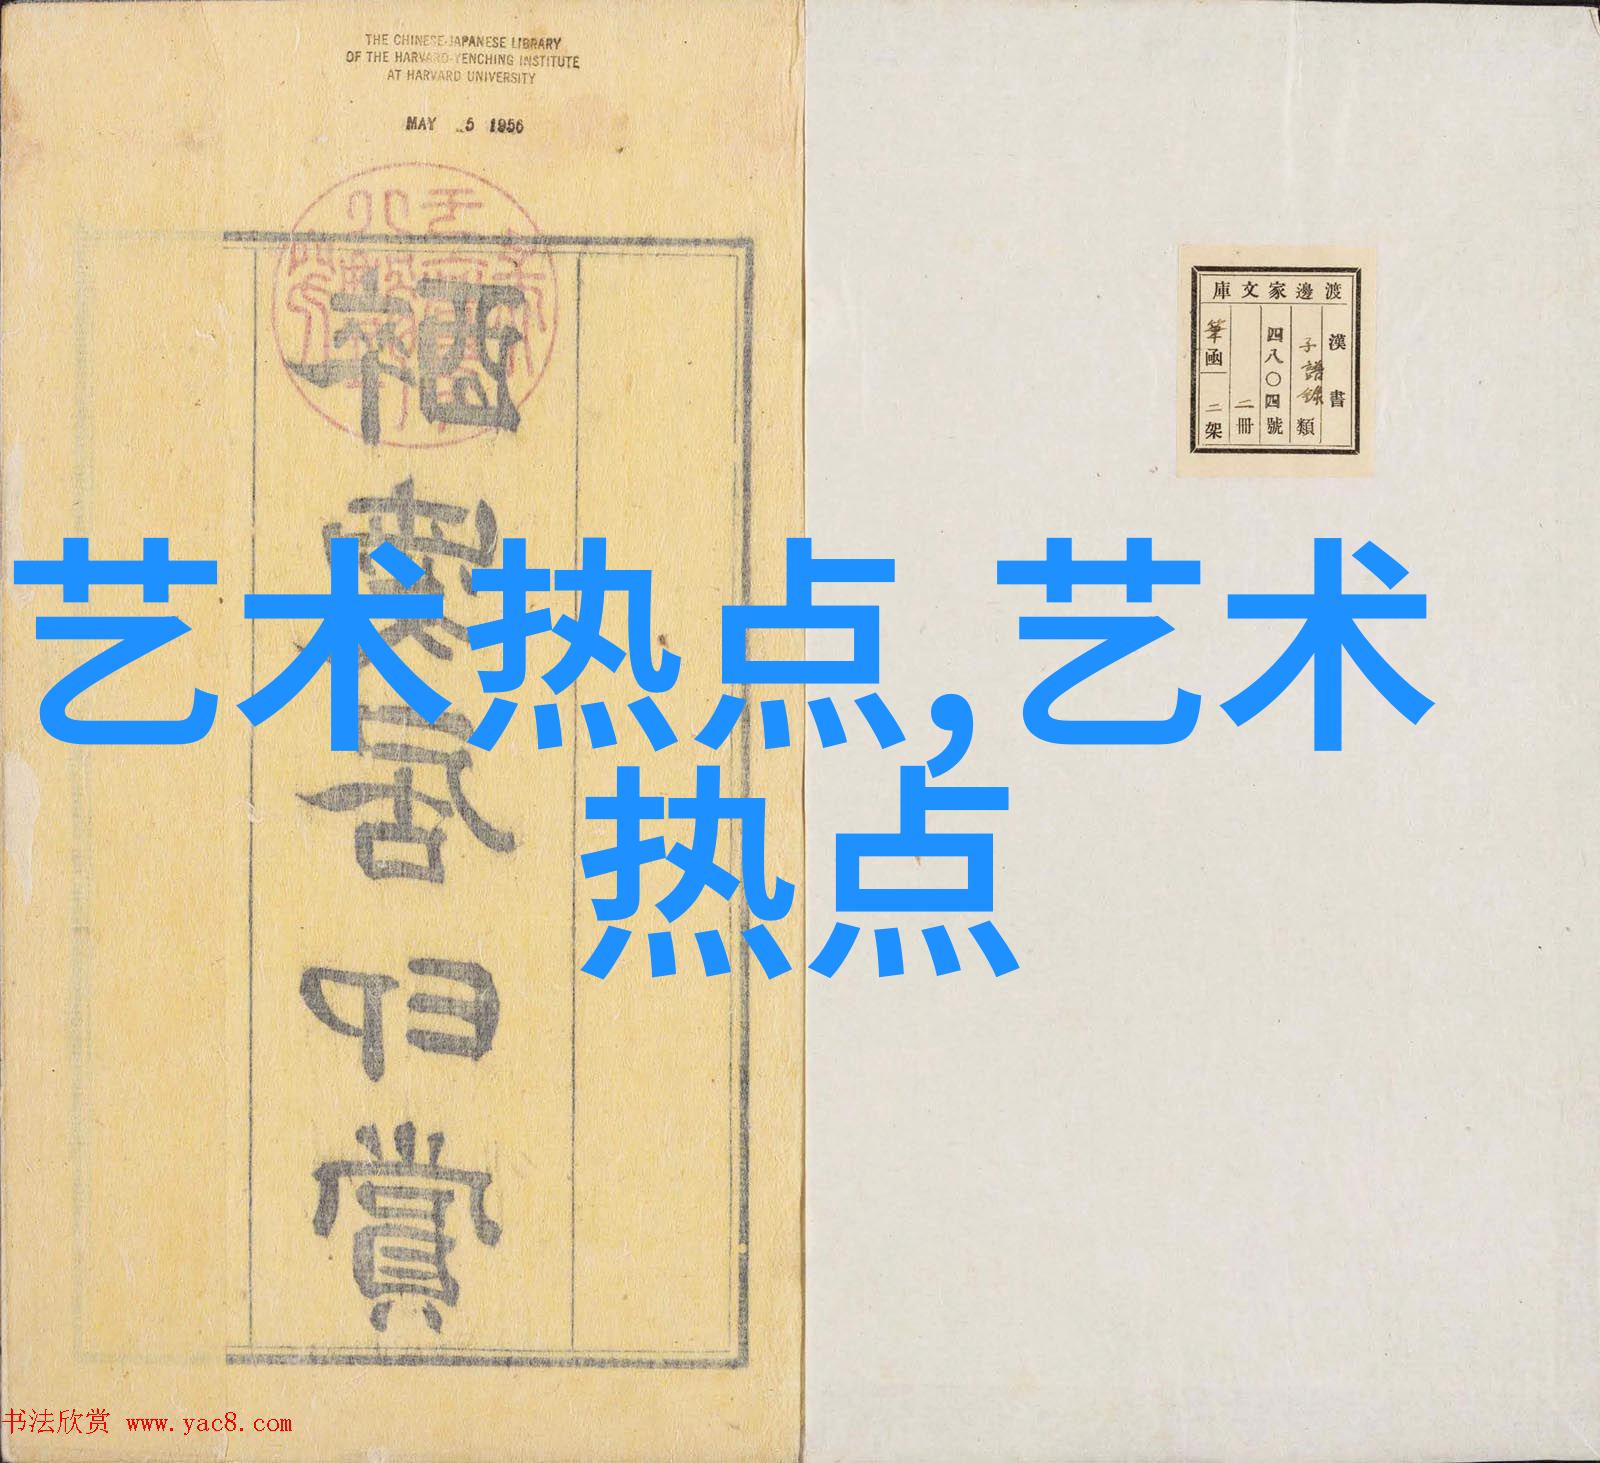 THE CHINESE-JAPANESE LIBRARY
OF THE HARVARD-YENCHING INSTITUTE
AT HARVARD UNIVERSITY
MAY 5 1956
印賞
渡邊家文庫
漢書
子譜錄類
四八〇四號
二冊
筆函二架
艺术热点,艺术
热点
书法欣赏 www.yac8.com